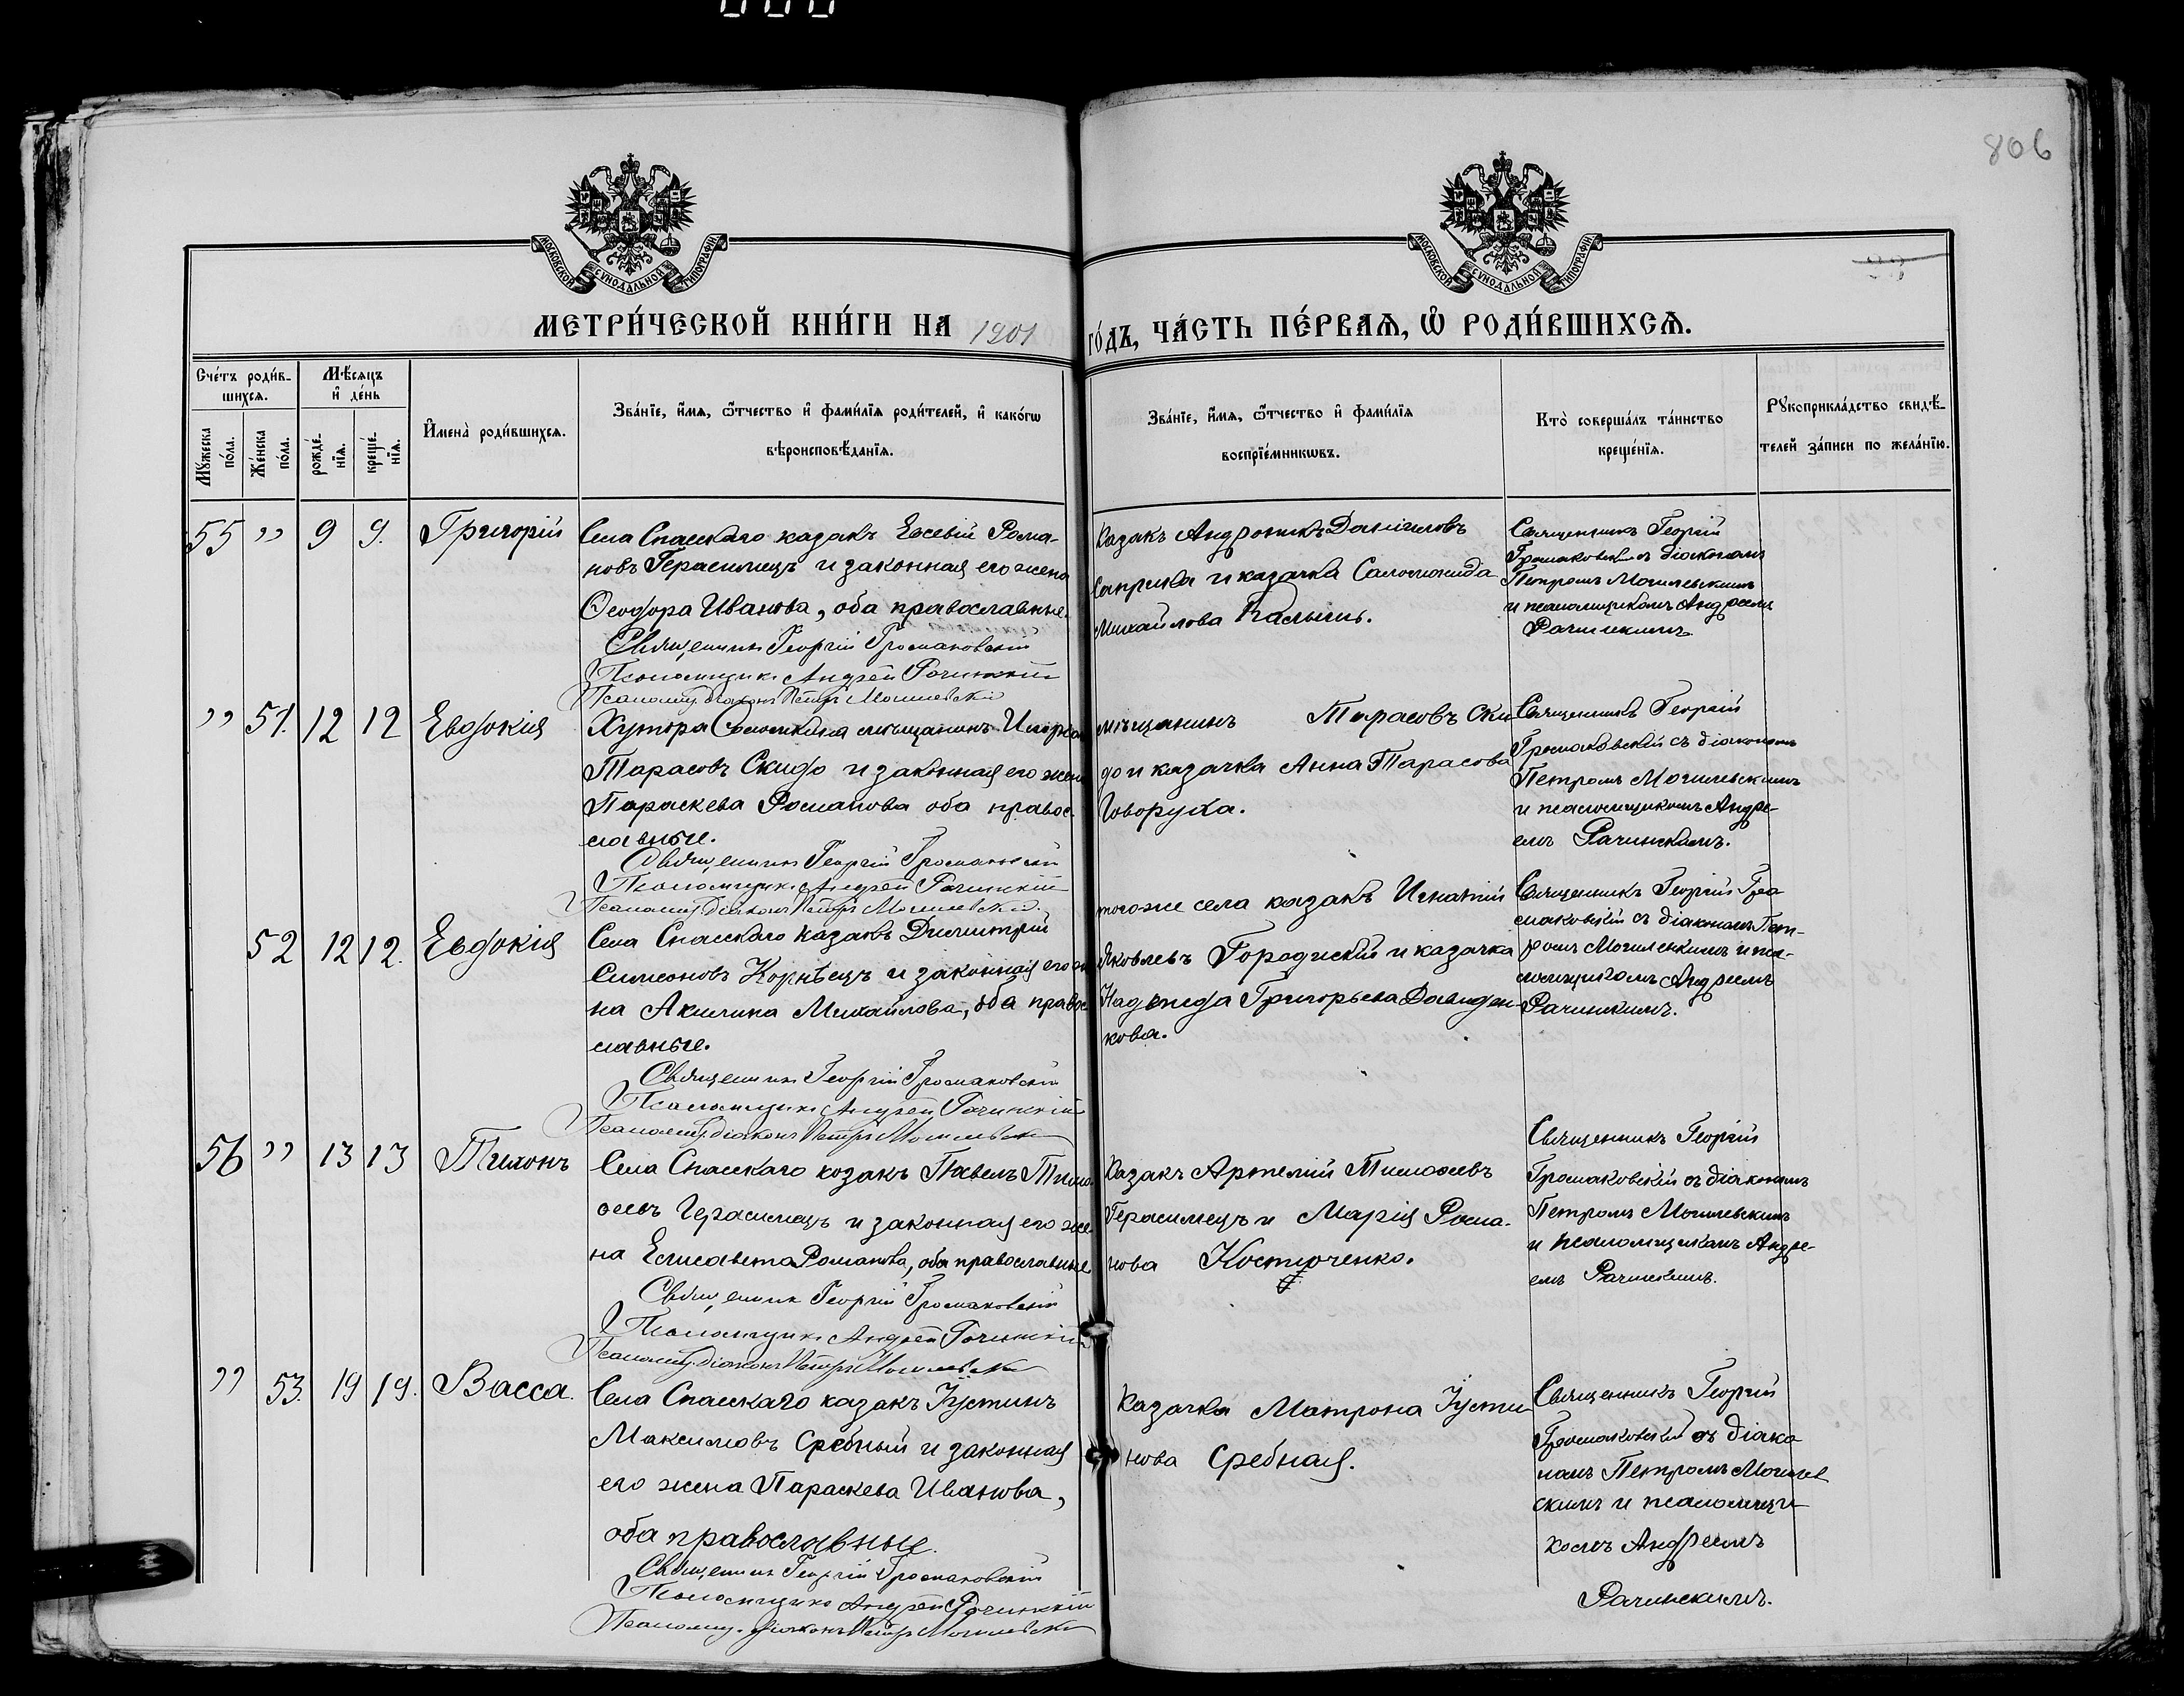 806
МОСКОВСКОЙ СѴНОДАЛЬНОЙ ТИПОГРАФІИ
МОСКОВСКОЙ СѴНОДАЛЬНОЙ ТИПОГРАФІИ
МЕТРИ́ЧЕСКОЙ КНИ́ГИ НА 1901 ГО́ДЪ, ЧА́СТЬ ПЕ́РВАѦ, Ѽ РОДИ́ВШИХСѦ.
Сче́тъ роди́в-
шихсѧ.
Мꙋ́жеска по́ла.
Же́нска по́ла.
Мѣ́сѧцъ и҆ де́нь
рожде́-
нїѧ.
креще́-
нїѧ.
И҆мена̀ роди́вшихсѧ.
Зва́нїе, и҆́мѧ, ѻ҆́тчество и҆ фами́лїѧ роди́телей, и҆ како́гѡ
вѣроисповѣ́данїѧ.
Зва́нїе, и҆́мѧ, ѻ҆́тчество и҆ фами́лїѧ
воспрїе́мникѡвъ.
Кто̀ соверша́лъ та́инство
креще́нїѧ.
Рꙋкоприкла́дство свидѣ́-
телей за́писи по жела́нїю.
55 " 9 9. Григорій
Села Спасскаго казакъ Евсевій Рома-
новъ Герасимецъ и законная его жена
Ѳеодора Иванова, оба православные.
Священникъ Георгій Громаковскій
Псаломщикъ Андрей Рачинскій
Псаломщ. діаконъ Петръ Могилевскій
Казакъ Андроникъ Даніиловъ
и казачка Саломонида
Михайлова
Священникъ Георгій
Громаковскій съ діакономъ
Петромъ Могилевскимъ
и псаломщикомъ Андреемъ
Рачинскимъ.
" 51. 12 12 Евдокія
Хутора мѣщанинъ
Тарасовъ Скидо и законная его жена
Параскева Романова оба правос-
лавные.
Священникъ Георгій Громаковскій
Псаломщикъ Андрей Рачинскій
Псаломщ. діаконъ Петръ Могилевскій.
мѣщанинъ Тарасовъ Ски
до и казачка Анна Тарасова
Говоруха.
Священникъ Георгій
Громаковскій съ діакономъ
Петромъ Могилевскимъ
и псаломщикомъ Андре-
емъ Рачинскимъ.
52 12 12. Евдокія
Села Спасскаго казакъ Димитрій
Симеоновъ Корнѣецъ и законная его же
на Акилина Михайлова, оба правос
лавные.
Священникъ Георгій Громаковскій
Псаломщикъ Андрей Рачинскій
Псаломщ. діаконъ Петръ Могилевскій
тогоже села казакъ Игнатій
Яковлевъ Городискій и казачка
Надежда Григорьева Давиден-
кова.
Священникъ Георгій Гро
маковскій съ діакономъ Пет-
ромъ Могилевскимъ и пса-
ломщикомъ Андреемъ
Рачинскимъ.
56 " 13 13 Тихонъ
Села Спасскаго козакъ Павелъ Тимо
ѳеевъ Герасимецъ и законная его же
на Елисавета Романова, оба православные
Священникъ Георгій Громаковскій
Псаломщикъ Андрей Рачинскій
Псаломщ. діаконъ Петръ Могилевскій
Казакъ Артемій Тимоѳеевъ
Герасимецъ и Марія Рома-
нова Костюченко.
Священникъ Георгій
Громаковскій съ діакономъ
Петромъ Могилевскимъ
и псаломщикомъ Андре-
емъ Рачинскимъ.
" 53. 19 19. Васса.
Села Спасскаго казакъ Іустинъ
Максимовъ Сребный и законная
его жена Параскева Иванова,
оба православные.
Священникъ Георгій Громаковскій
Псаломщикъ Андрей Рачинскій
Псаломщ. діаконъ Петръ Могилевскій
Казачка Матрона Іусти
нова Сребная.
Священникъ Георгій
Громаковскій съ діако
номъ Петромъ Могилев
скимъ и псаломщи-
комъ Андреемъ
Рачинскимъ.